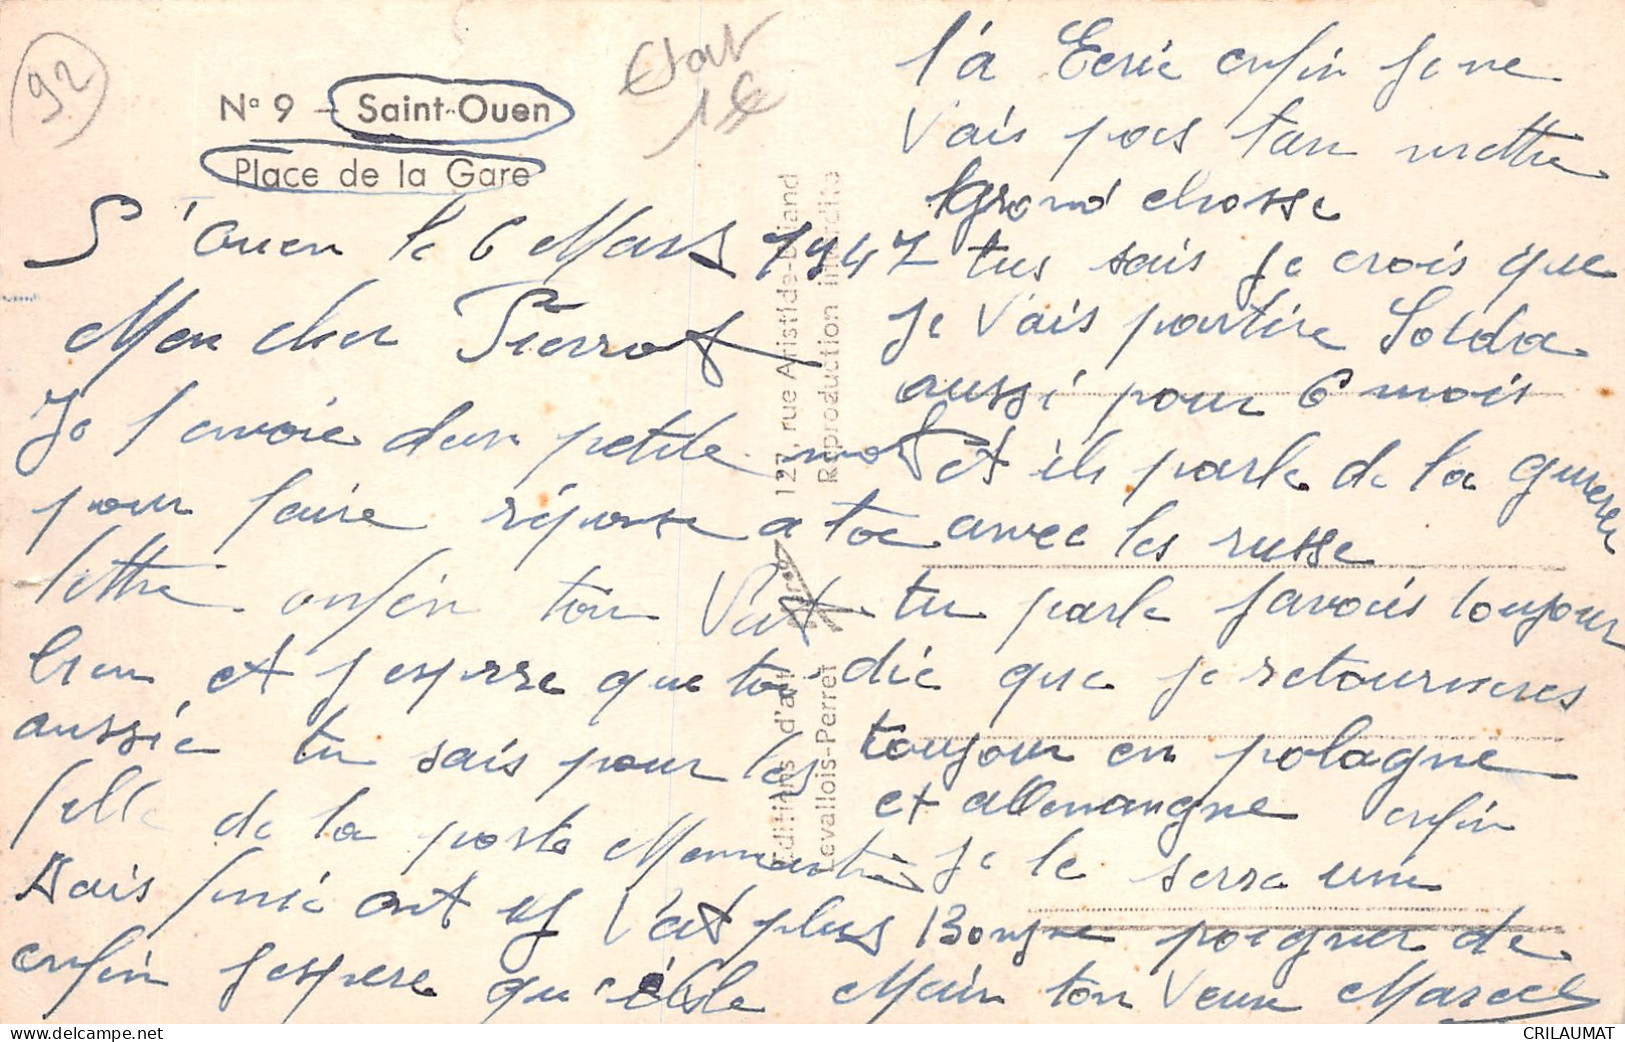 92
Etat
1€
N° 9 - Saint-Ouen
Place de la Gare
S' Ouen le 6 Mars 1947
Mon cher Pierrot
Je l'envoie dun petite mot
pour faire réponse a toe
lettre. enfin tou Vat
bien et j'espere que toi
aussie tu sais pour les
fille de la porte Momartre
Sais finie ont y Vat plus
enfin jespere qu'elsle
t'a Ecrie enfin je ne
Vais pas tan mettre
grand chosse
tus sais je crois que
je Vais partire Solda
aussi pour 6 mois
et ils parle de la guerere
avec les russe
tu parle javais toujour
die que je retourneres
toujour en polagne
et allemangne enfin
je te serre une
Bonne poigner de
Main ton Vieux Marcel
127, rue Aristide-Briand
Reproduction interdite
Editions d'art
Levallois-Perret
CRILAUMAT